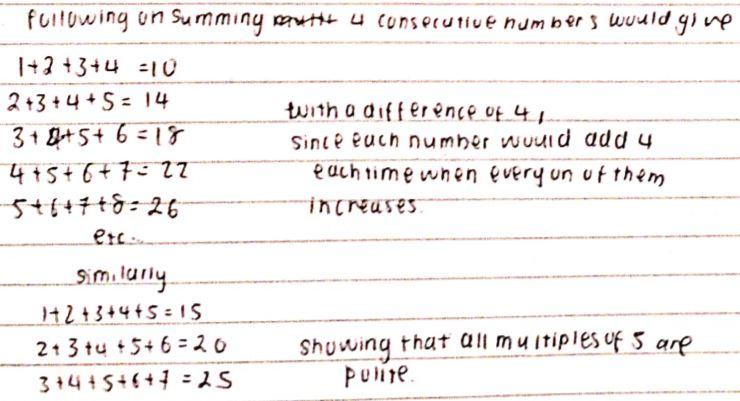 following on summing 4 consecutive numbers would give
1+2+3+4 =10
2+3+4+5= 14
3+4+5+6=18
4+5+6+7= 22
5+6+7+8=26
etc..
with a difference of 4,
since each number would add 4
each time when every on of them
increases.
similarly
1+2+3+4+5=15
2+3+4+5+6=20
3+4+5+6+7=25
showing that all multiples of 5 are
polite.